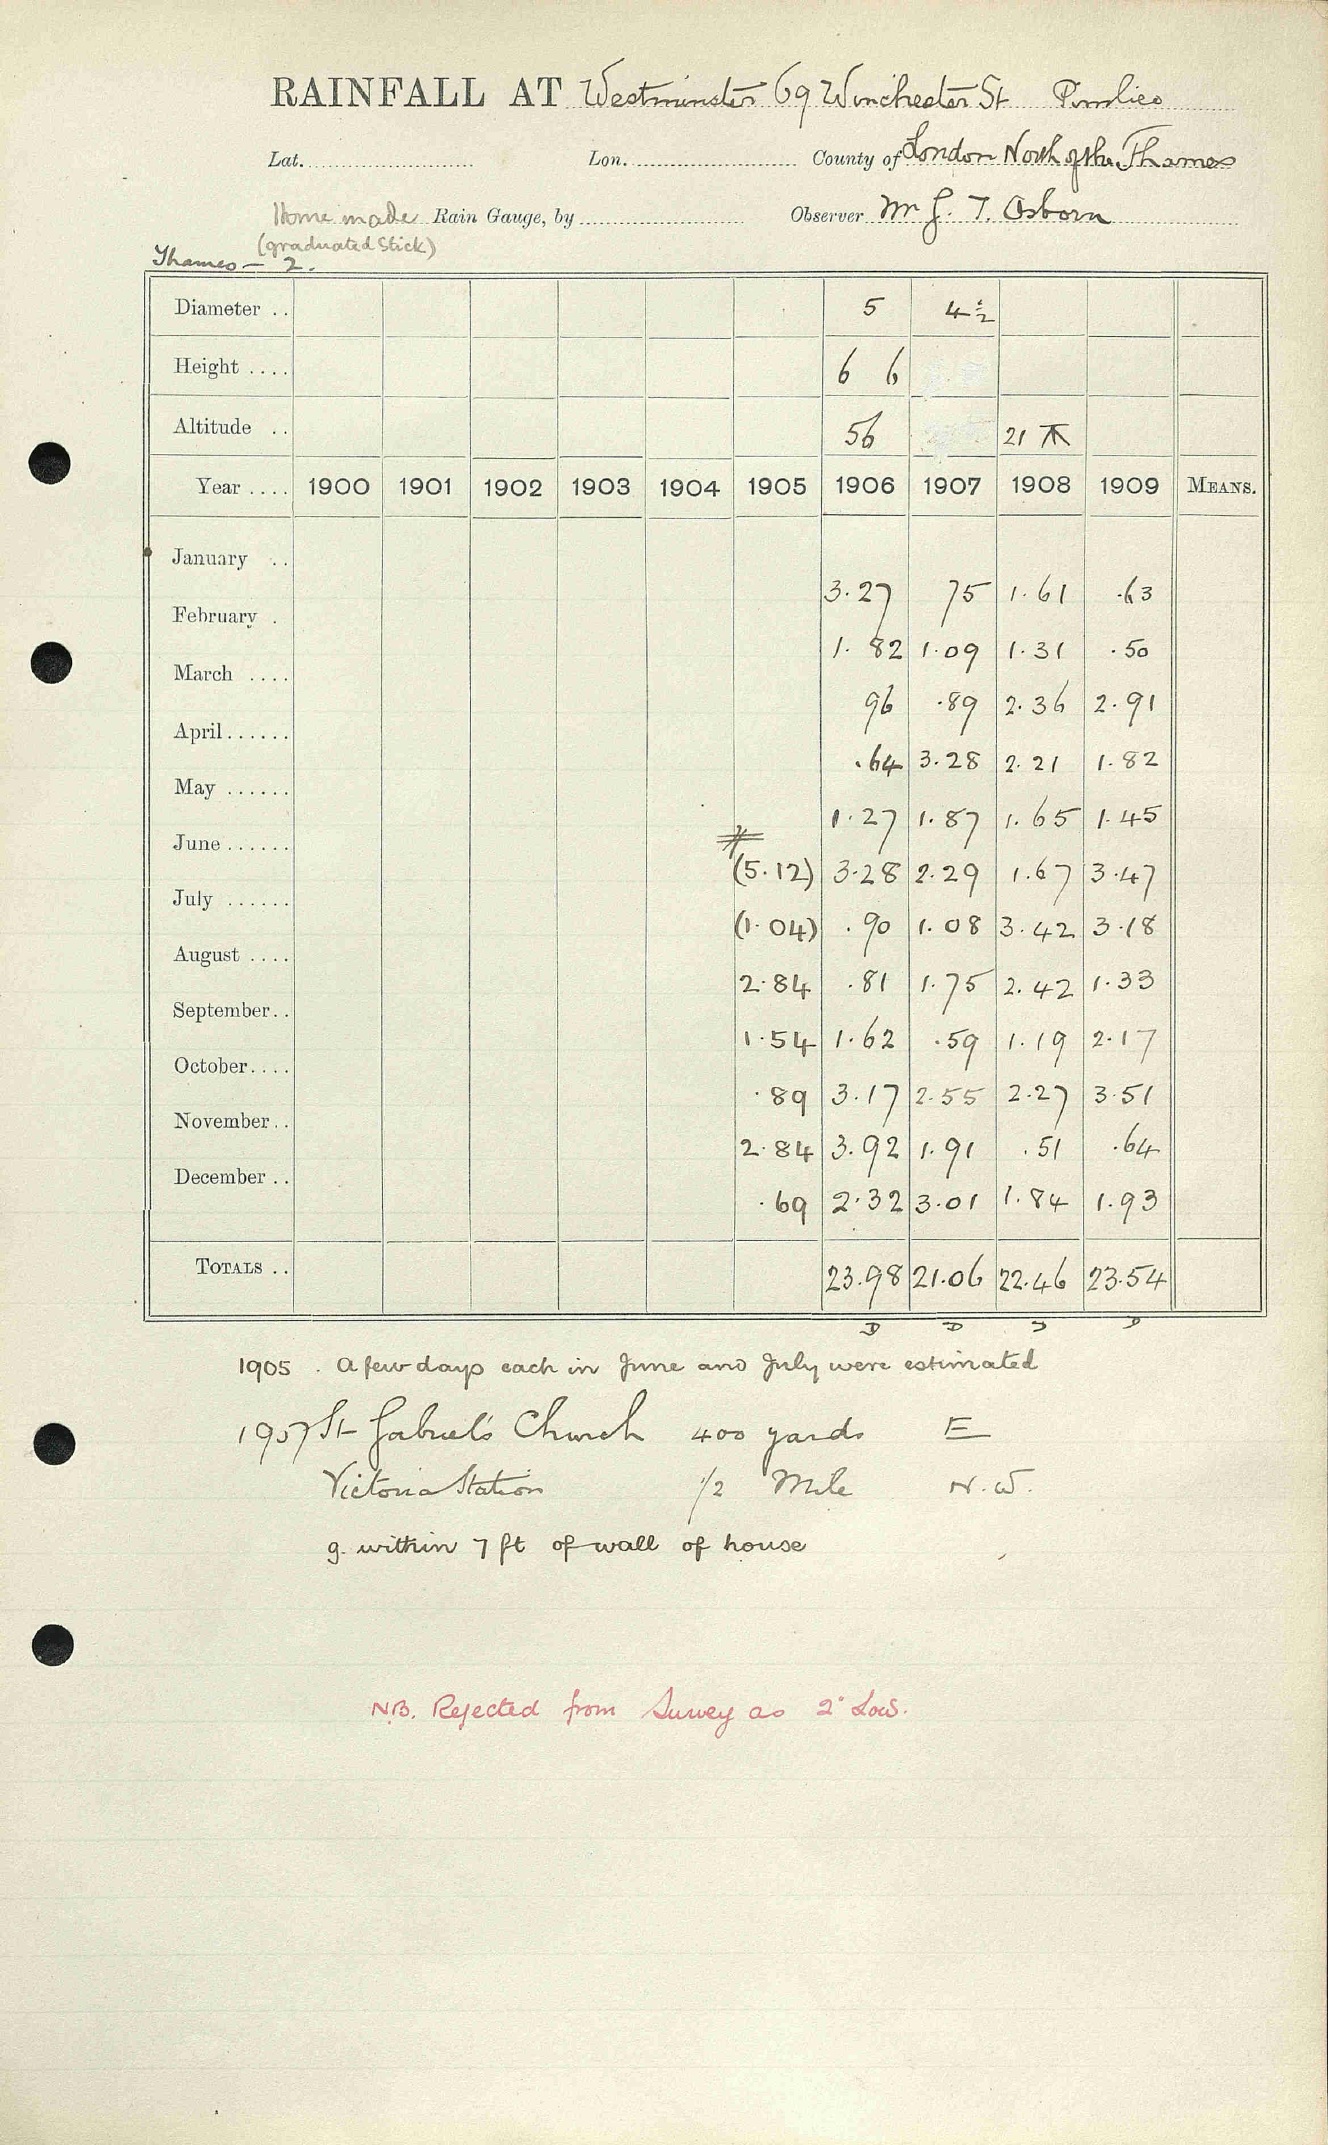 RAINFALL AT Westminster 69 Winchester St Pimlico
Lat. Lon. County of London North of the Thames
Home made Rain Gauge, by Observer Mr G. T. Osborn
(graduated Stick)
Thames — 2.
Diameter .. 5 4½
Height .... 6 6
Altitude .. 56 21
Year .... 1900 1901 1902 1903 1904 1905 1906 1907 1908 1909 MEANS.
January .. 3.27 75 1.61 .63
February . 1.82 1.09 1.31 .50
March .... 96 .89 2.36 2.91
April ...... .64 3.28 2.21 1.82
May ...... 1.27 1.87 1.65 1.45
June ...... (5.12) 3.28 2.29 1.67 3.47
July ...... (1.04) .90 1.08 3.42 3.18
August .... 2.84 .81 1.75 2.42 1.33
September .. 1.54 1.62 .59 1.19 2.17
October .... .89 3.17 2.55 2.27 3.51
November .. 2.84 3.92 1.91 .51 .64
December .. .69 2.32 3.01 1.84 1.93
TOTALS .. 23.98 21.06 22.46 23.54
D D D D
1905 . A few days each in June and July were estimated
1907 St Gabriel's Church 400 yards E
Victoria Station 1/2 Mile N.W.
g. within 7 ft of wall of house
NB. Rejected from Survey as 2" Low.